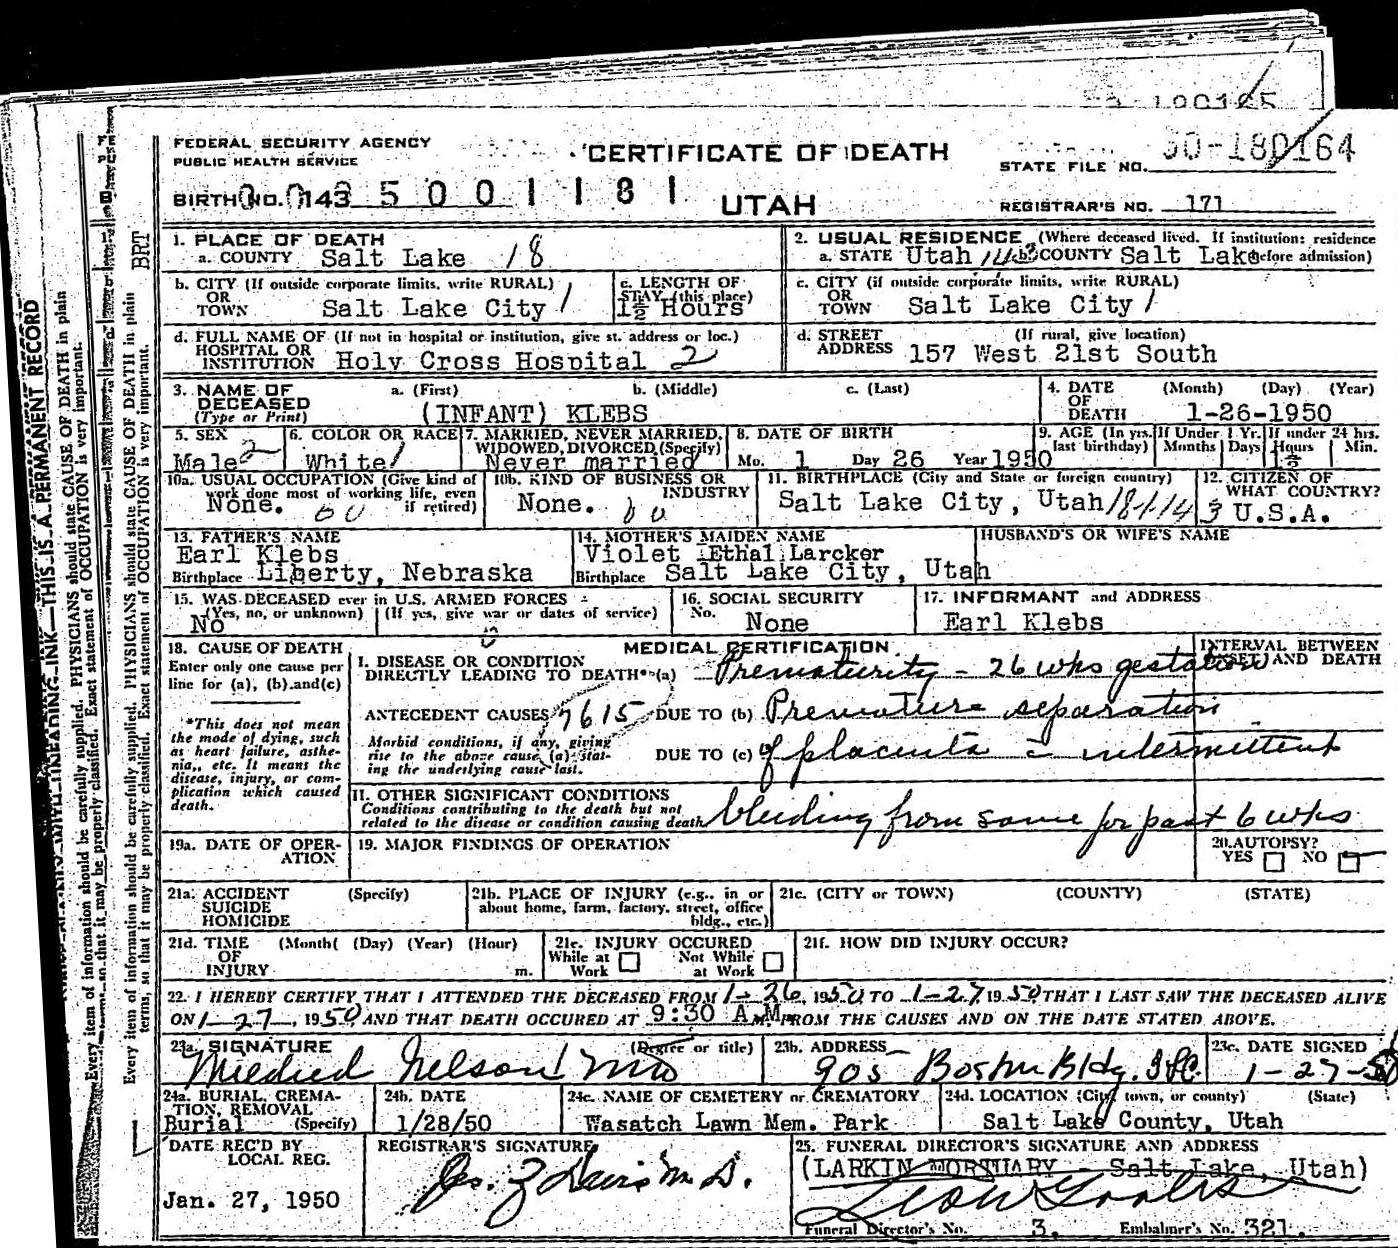 180165
FEDERAL SECURITY AGENCY
PUBLIC HEALTH SERVICE
CERTIFICATE OF DEATH
STATE FILE NO. 50-180164
BIRTH NO. 143 5 0 0 1 1 8 1
UTAH
REGISTRAR'S NO. 171
1. PLACE OF DEATH
a. COUNTY Salt Lake 18
2. USUAL RESIDENCE (Where deceased lived. If institution: residence
a. STATE Utah 143 b. COUNTY Salt Lake before admission)
b. CITY (If outside corporate limits, write RURAL)
OR
TOWN Salt Lake City 1
c. LENGTH OF
STAY (this place)
1½ Hours
c. CITY (if outside corporate limits, write RURAL)
OR
TOWN Salt Lake City 1
d. FULL NAME OF (If not in hospital or institution, give st. address or loc.)
HOSPITAL OR
INSTITUTION Holy Cross Hospital 2
d. STREET (If rural, give location)
ADDRESS 157 West 21st South
3. NAME OF DECEASED
(Type or Print)
a. (First) b. (Middle) c. (Last)
(INFANT) KLEBS
4. DATE OF DEATH (Month) (Day) (Year)
1-26-1950
5. SEX
Male 2
6. COLOR OR RACE
White 1
7. MARRIED, NEVER MARRIED,
WIDOWED, DIVORCED (Specify)
Never married
8. DATE OF BIRTH
Mo. 1 Day 26 Year 1950
9. AGE (In yrs. last birthday) If Under 1 Yr. Months Days If under 24 hrs. Hours Min.
1½
10a. USUAL OCCUPATION (Give kind of
work done most of working life, even
if retired)
None.
10b. KIND OF BUSINESS OR
INDUSTRY
None.
11. BIRTHPLACE (City and State or foreign country)
Salt Lake City, Utah
12. CITIZEN OF
WHAT COUNTRY?
U.S.A.
13. FATHER'S NAME
Earl Klebs
Birthplace Liberty, Nebraska
14. MOTHER'S MAIDEN NAME
Violet Ethal Larcker
Birthplace Salt Lake City, Utah
HUSBAND'S OR WIFE'S NAME
15. WAS DECEASED ever in U.S. ARMED FORCES
(Yes, no, or unknown) (If yes, give war or dates of service)
No
16. SOCIAL SECURITY
No. None
17. INFORMANT and ADDRESS
Earl Klebs
18. CAUSE OF DEATH
Enter only one cause per
line for (a), (b) and (c)
*This does not mean
the mode of dying, such
as heart failure, asthe-
nia, etc. It means the
disease, injury, or com-
plication which caused
death.
MEDICAL CERTIFICATION
INTERVAL BETWEEN
ONSET AND DEATH
I. DISEASE OR CONDITION
DIRECTLY LEADING TO DEATH* (a) Prematurity - 26 wks gestation
ANTECEDENT CAUSES 7615 DUE TO (b) Premature separation
Morbid conditions, if any, giving
rise to the above cause (a) stat-
ing the underlying cause last.
DUE TO (c) of placenta c̄ intermittent
II. OTHER SIGNIFICANT CONDITIONS
Conditions contributing to the death but not
related to the disease or condition causing death
bleeding from same for past 6 wks
19a. DATE OF OPER-
ATION
19. MAJOR FINDINGS OF OPERATION
20. AUTOPSY?
YES NO
21a. ACCIDENT (Specify)
SUICIDE
HOMICIDE
21b. PLACE OF INJURY (e.g., in or
about home, farm, factory, street, office
bldg., etc.)
21c. (CITY or TOWN) (COUNTY) (STATE)
21d. TIME (Month( (Day) (Year) (Hour)
OF
INJURY m.
21e. INJURY OCCURED
While at Work Not While at Work
21f. HOW DID INJURY OCCUR?
22. I HEREBY CERTIFY THAT I ATTENDED THE DECEASED FROM 1-26, 1950, TO 1-27, 1950 THAT I LAST SAW THE DECEASED ALIVE
ON 1-27, 1950, AND THAT DEATH OCCURED AT 9:30 A.M. FROM THE CAUSES AND ON THE DATE STATED ABOVE.
23a. SIGNATURE (Degree or title)
Mildred Nelson MD
23b. ADDRESS
905 Boston Bldg. SLC
23c. DATE SIGNED
1-27-50
24a. BURIAL, CREMA-
TION, REMOVAL
Burial (Specify)
24b. DATE
1/28/50
24c. NAME OF CEMETERY or CREMATORY
Wasatch Lawn Mem. Park
24d. LOCATION (City, town, or county) (State)
Salt Lake County, Utah
DATE REC'D BY
LOCAL REG.
Jan. 27, 1950
REGISTRAR'S SIGNATURE
25. FUNERAL DIRECTOR'S SIGNATURE AND ADDRESS
(LARKIN MORTUARY - Salt Lake, Utah)
Funeral Director's No. 3. Embalmer's No. 321.
THIS IS A PERMANENT RECORD
Every item of information should be carefully supplied. PHYSICIANS should state CAUSE OF DEATH in plain
terms, so that it may be properly classified. Exact statement of OCCUPATION is very important.
BRT